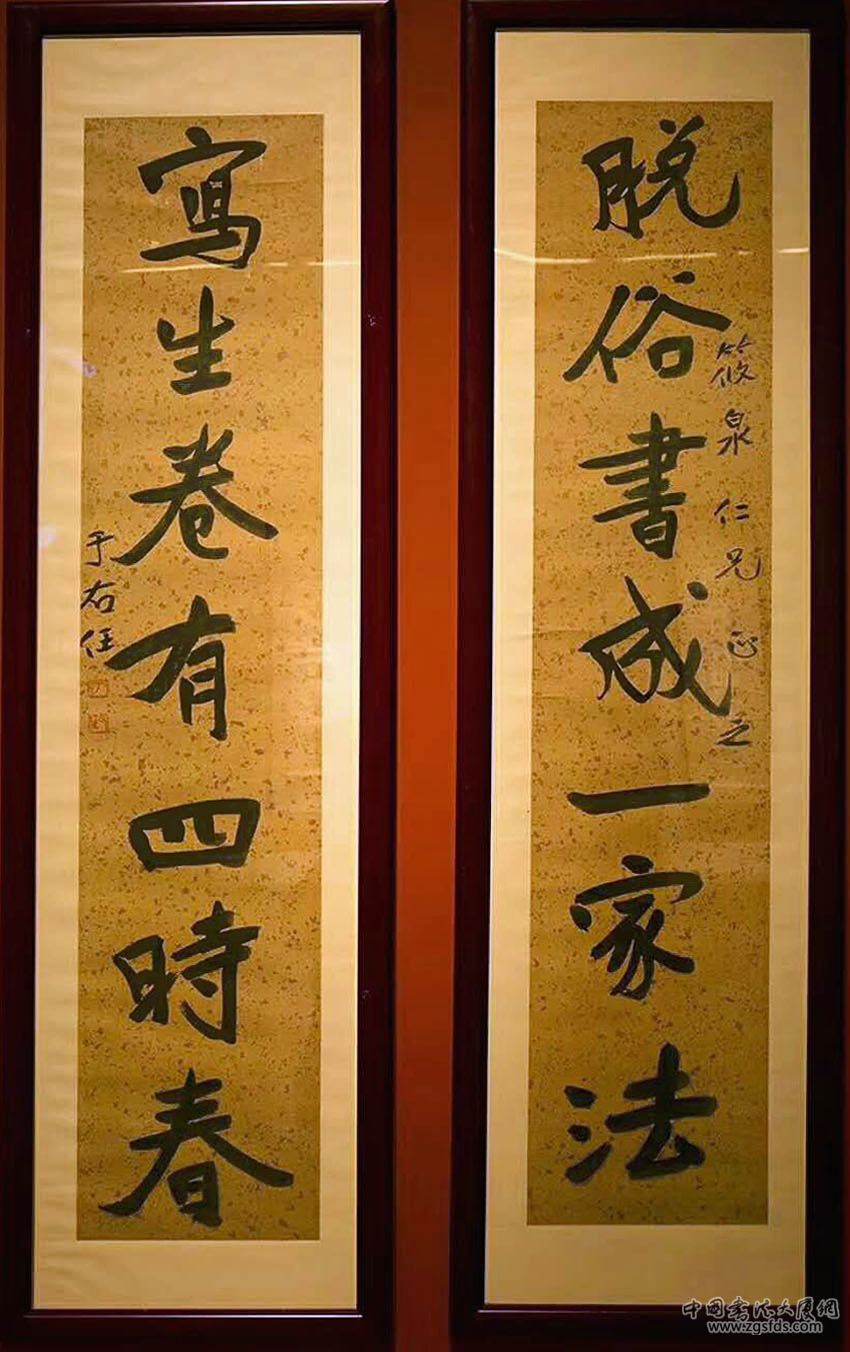 脱俗書成一家法
筱泉仁兄正之
寫生卷有四時春
于右任
中國書法大厦網
www.zgsfds.com